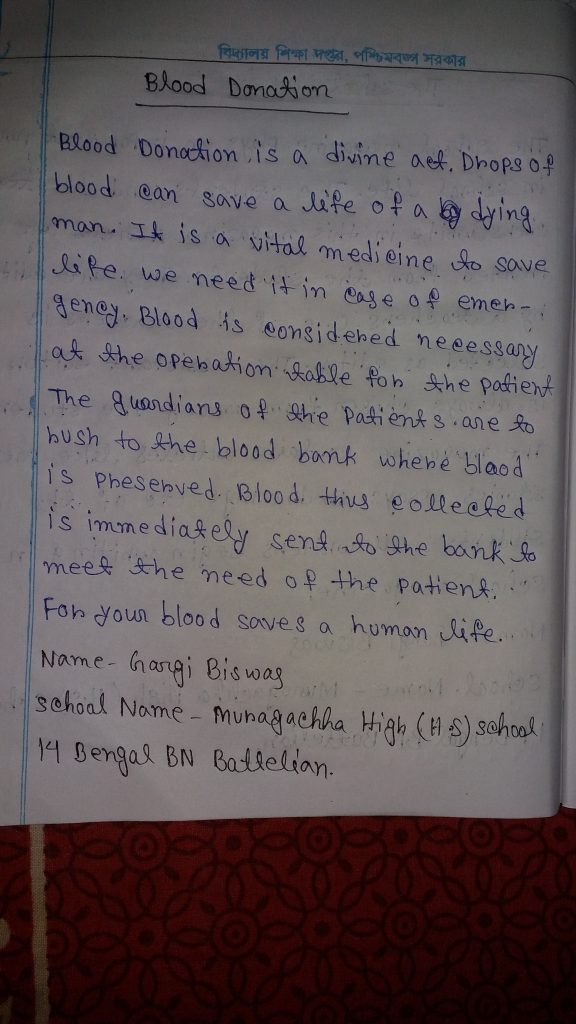 বিদ্যালয় শিক্ষা দপ্তর, পশ্চিমবঙ্গ সরকার
Blood Donation
Blood Donation is a divine act. Drops of
blood can save a life of a dying
man. It is a vital medicine to save
life. we need it in case of emer-
gency. Blood is considered necessary
at the operation table for the patient
The guardians of the patients are to
rush to the blood bank where blood
is preserved. Blood thus collected
is immediately sent to the bank to
meet the need of the patient.
For your blood saves a human life.
Name - Gargi Biswas
School Name - Muragachha High (H.S) school
14 Bengal BN Battelian.